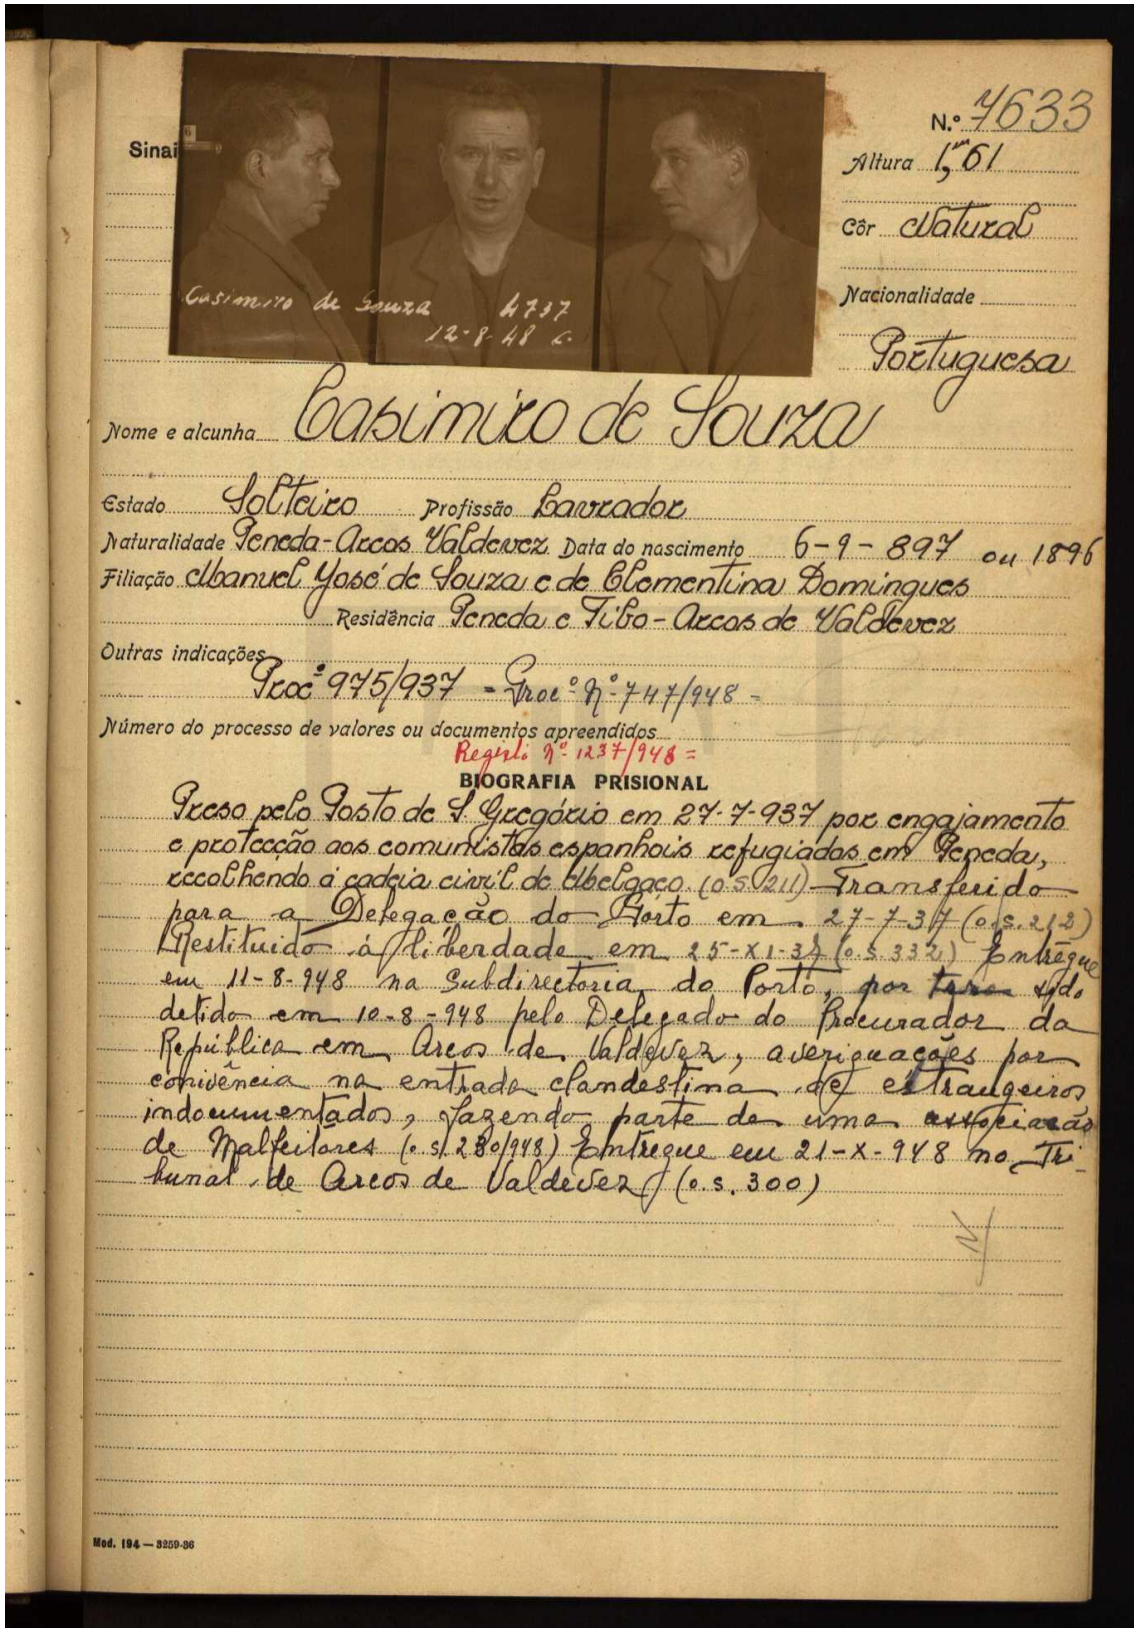 N.º 7633
Sinai
Altura 1,m61
Côr Natural
Nacionalidade
Portuguesa
6
Casimiro de Souza 4737
12-8-48
Nome e alcunha Casimiro de Souza
Estado Solteiro Profissão Lavrador
Naturalidade Peneda-Arcos Valdevez Data do nascimento 6-9-897 ou 1896
Filiação Manuel José de Souza e de Clementina Domingues
Residência Peneda e Tibo-Arcos de Valdevez
Outras indicações
Procº 975/937 = Procº Nº 747/948 =
Número do processo de valores ou documentos apreendidos
Registo Nº 1237/948 =
BIOGRAFIA PRISIONAL
Preso pelo Posto de S. Gregório em 27-7-937 por engajamento
e protecção aos comunistas espanhois refugiados em Peneda,
recolhendo á cadeia civil de Melgaço. (o.s. 211) Transferido
para a Delegação do Pôrto em 27-7-37 (o.s. 212)
Restituido á liberdade em 25-XI-37 (o.s. 332) Entregue
em 11-8-948 na Subdirectoria do Porto, por ter sido
detido em 10-8-948 pelo Delegado do Procurador da
República em Arcos de Valdevez, averiguações por
conivência na entrada clandestina de estrangeiros
indocumentados, fazendo parte de uma associação
de Malfeitores (o.s. 230/948) Entregue em 21-X-948 no Tri-
bunal de Arcos de Valdevez (o.s. 300)
Mod. 194 — 3259-36